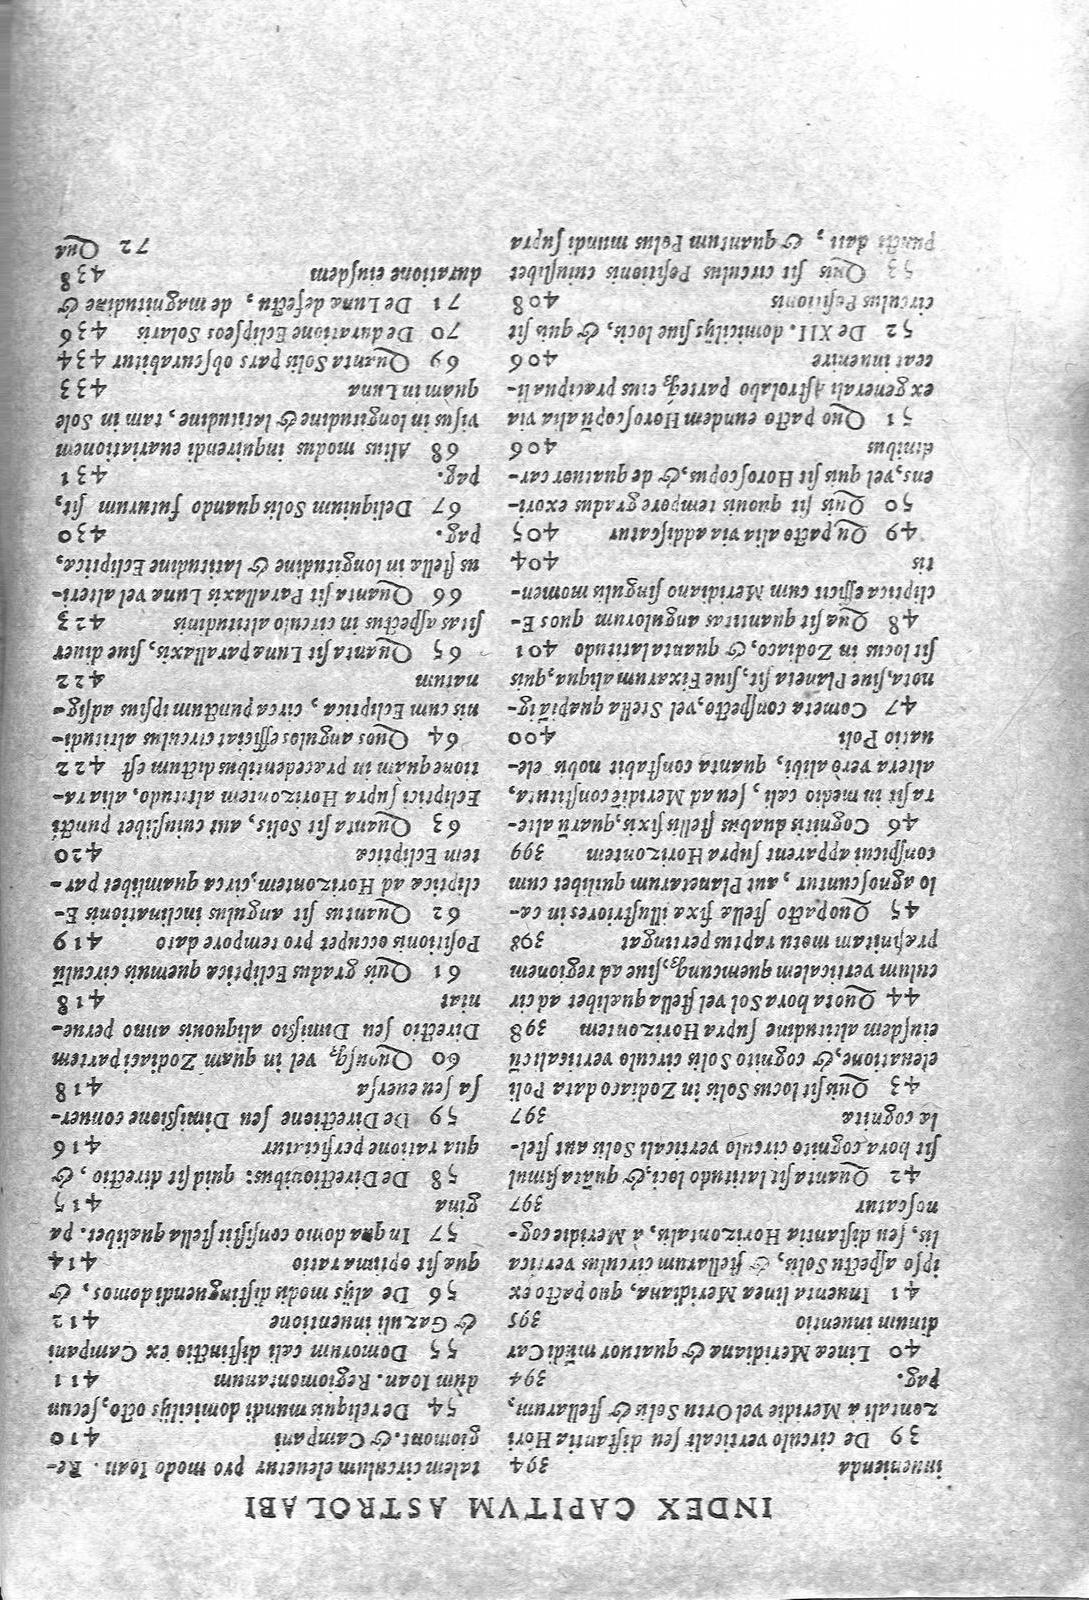 INDEX CAPITVM ASTROLABI
inuenienda 394
39 De circulo verticali ſeu diſtantia Hori
zontali a Meridie vel Ortu Solis & ſtellarum,
pag. 394
40 Lineæ Meridianæ & quatuor mũdi Car
dinum inuentio 395
41 Inuenta linea Meridiana, quo pacto ex
ipſo aſpectu Solis, & ſtellarum circulus vertica
lis, ſeu diſtantia Horizontalis, à Meridie cog-
noſcatur 397
42 Quanta ſit latitudo loci, & quãta ſimul
ſit hora, cognito circulo verticali Solis aut ſtel-
læ cognitæ 397
43 Quis ſit locus Solis in Zodiaco data Poli
eleuatione, & cognito Solis circulo verticali cũ
eiuſdem altitudine ſupra Horizontem 398
44 Quota hora Sol vel ſtella quælibet ad cir
culum verticalem quemcunq;, ſiue ad regionem
præfinitam motu raptus pertingat 398
45 Quo pacto ſtellæ fixæ illuſtriores in cæ-
lo agnoſcuntur, aut Planetarum quilibet cum
conſpicui apparent ſupra Horizontem 399
46 Cognitis duabus ſtellis fixis, quarũ alte-
ra ſit in medio cæli, ſeu ad Meridiẽ conſtituta,
altera verò alibi, quanta conſtabit nobis ele-
uatio Poli 400
47 Cometa conſpecto, vel Stella quapiã ig-
nota, ſiue Planeta ſit, ſiue Fixarum aliqua, quis
ſit locus in Zodiaco, & quanta latitudo 401
48 Quæ ſit quantitas angulorum quos E-
cliptica efficit cum Meridiano ſingulis momen-
tis 404
49 Qu pacto alia via addiſcatur 405
50 Quis ſit quouis tempore gradus exori-
ens, vel quis ſit Horoſcopus, & de quatuor car-
dinibus 406
51 Quo pacto eundem Horoſcopũ alia via
ex generali Aſtrolabo parteq; eius præcipua li-
ceat inuenire 406
52 De XII. domicilijs ſiue locis, & quis ſit
circulus Poſitionis 408
53 Quis ſit circulus Poſitionis cuiuſlibet
puncti dati, & quantum Polus mundi ſupra
talem circulum eleuetur pro modo Ioan. Re-
giomont. & Campani 410
54 De reliquis mundi domicilijs octo, ſecun
dùm Ioan. Regiomontanum 411
55 Domorum cæli diſtinctio ex Campani
& Gazuli inuentione 412
56 De alijs modis diſtinguendi domos, &
quæ ſit optima ratio 414
57 In qua domo conſiſtit ſtella quælibet. pa
gina 415
58 De Directionibus: quid ſit directio, &
qua ratione perficiatur 416
59 De Directione ſeu Dimiſſione conuer-
ſa ſeu euerſa 418
60 Quouſq; vel in quam Zodiaci partem
Directio ſeu Dimiſſio aliquouis anno perue-
niat 418
61 Quis gradus Eclipticæ quemuis circulũ
Poſitionis occupet pro tempore dato 419
62 Quantus ſit angulus inclinationis E-
clipticæ ad Horizontem, circa quamlibet par-
tem Eclipticæ 420
63 Quanta ſit Solis, aut cuiuſlibet puncti
Ecliptici ſupra Horizontem altitudo, alia ra-
tione quàm in præcedentibus dictum eſt 422
64 Quos angulos efficiat circulus altitudi-
nis cum Ecliptica, circa punctum ipſius adſig-
natum 422
65 Quanta ſit Lunæ parallaxis, ſiue diuer
ſitas aſpectus in circulo altitudinis 423
66 Quanta ſit Parallaxis Lunæ vel alteri-
us ſtellæ in longitudine & latitudine Eclipticæ,
pag. 430
67 Deliquium Solis quando futurum ſit,
pag. 431
68 Alius modus inquirendi euariationem
viſus in longitudine & latitudine, tam in Sole
quam in Luna 433
69 Quanta Solis pars obſcurabitur 434
70 De duratione Eclipſeos Solaris 436
71 De Lunæ defectu, de magnitudine &
duratione eiuſdem 438
72 Qua